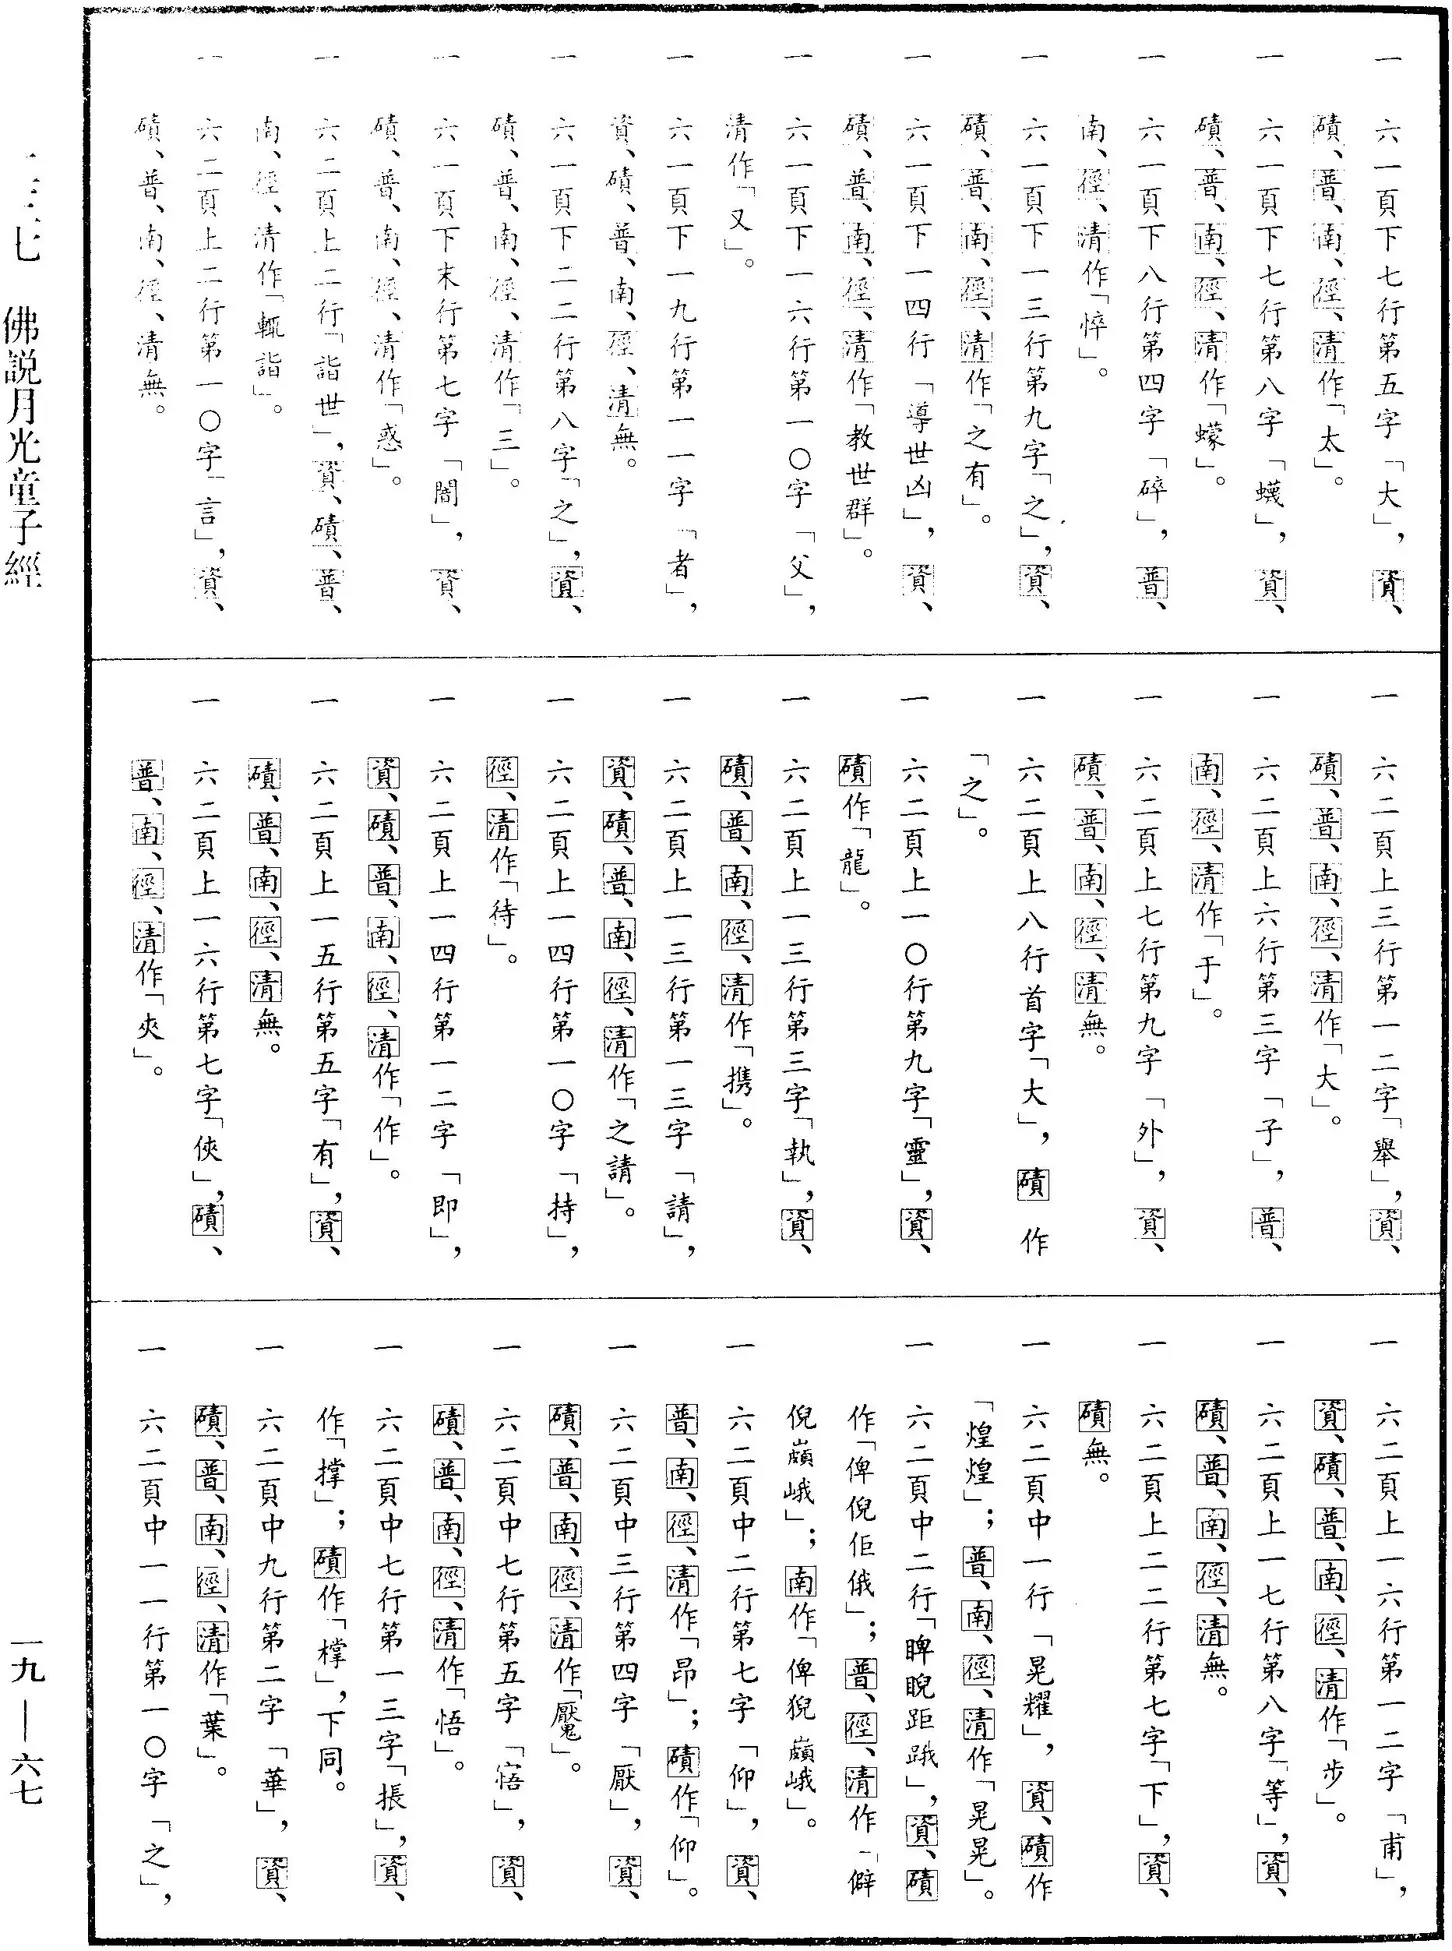 一 六一頁下七行第五字「大」，資、
磧、普、南、徑、清作「太」。
一 六一頁下七行第八字「蠛」，資、
磧、普、南、徑、清作「蠓」。
一 六一頁下八行第四字「碎」，普、
南、徑、清作「悴」。
一 六一頁下一三行第九字「之」，資、
磧、普、南、徑、清作「之有」。
一 六一頁下一四行「導世凶」，資、
磧、普、南、徑、清作「教世群」。
一 六一頁下一六行第一〇字「父」，
清作「又」。
一 六一頁下一九行第一一字「者」，
資、磧、普、南、徑、清無。
一 六一頁下二二行第八字「之」，資、
磧、普、南、徑、清作「三」。
一 六一頁下末行第七字「闇」，資、
磧、普、南、徑、清作「惑」。
一 六二頁上二行「詣世」，資、磧、普、
南、徑、清作「輒詣」。
一 六二頁上二行第一〇字「言」，資、
磧、普、南、徑、清無。
一 六二頁上三行第一二字「舉」，資、
磧、普、南、徑、清作「大」。
一 六二頁上六行第三字「子」，普、
南、徑、清作「于」。
一 六二頁上七行第九字「外」，資、
磧、普、南、徑、清無。
一 六二頁上八行首字「大」，磧作
「之」。
一 六二頁上一〇行第九字「靈」，資、
磧作「龍」。
一 六二頁上一三行第三字「執」，資、
磧、普、南、徑、清作「携」。
一 六二頁上一三行第一三字「請」，
資、磧、普、南、徑、清作「之請」。
一 六二頁上一四行第一〇字「持」，
徑、清作「待」。
一 六二頁上一四行第一二字「即」，
資、磧、普、南、徑、清作「作」。
一 六二頁上一五行第五字「有」，資、
磧、普、南、徑、清無。
一 六二頁上一六行第七字「俠」，磧、
普、南、徑、清作「夾」。
一 六二頁上一六行第一二字「甫」，
資、磧、普、南、徑、清作「步」。
一 六二頁上一七行第八字「等」，資、
磧、普、南、徑、清無。
一 六二頁上二二行第七字「下」，資、
磧無。
一 六二頁中一行「晃耀」，資、磧作
「煌煌」；普、南、徑、清作「晃晃」。
一 六二頁中二行「睥睨距跿」，資、磧
作「俾倪佢俄」；普、徑、清作「僻
倪巔峨」；南作「俾猊巔峨」。
一 六二頁中二行第七字「仰」，資、
普、南、徑、清作「昂」；磧作「仰」。
一 六二頁中三行第四字「厭」，資、
磧、普、南、徑、清作「魘」。
一 六二頁中七行第五字「寤」，資、
磧、普、南、徑、清作「悟」。
一 六二頁中七行第一三字「掁」，資、
作「撑」；磧作「橕」，下同。
一 六二頁中九行第二字「華」，資、
磧、普、南、徑、清作「葉」。
一 六二頁中一一行第一〇字「之」，
佛説月光童子經
一九—六七